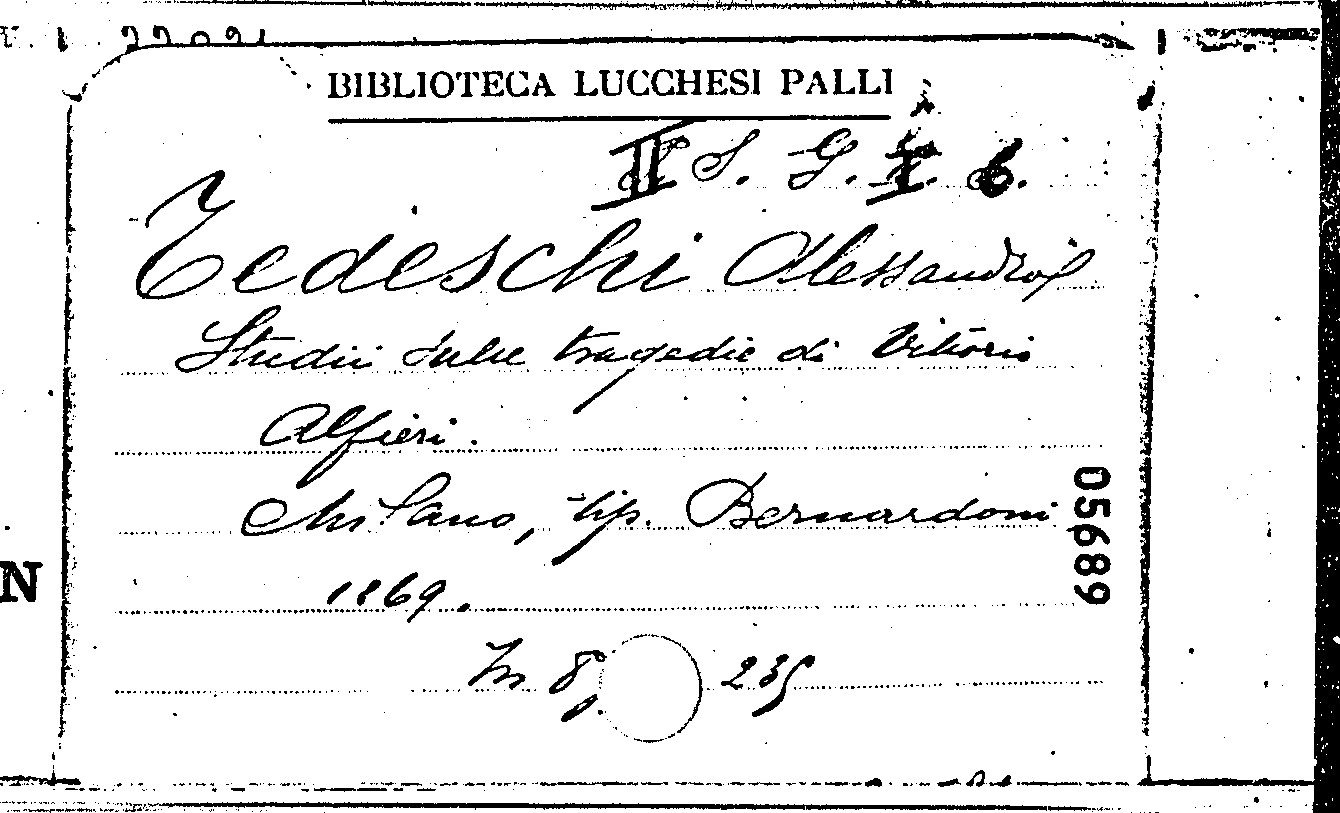 BIBLIOTECA LUCCHESI PALLI
II S. G. I. 6.
Tedeschi Alessandro
Studii sulle tragedie di Vittorio
Alfieri.
Milano, tip. Bernardoni
1869.
In 8, 235
05689
N